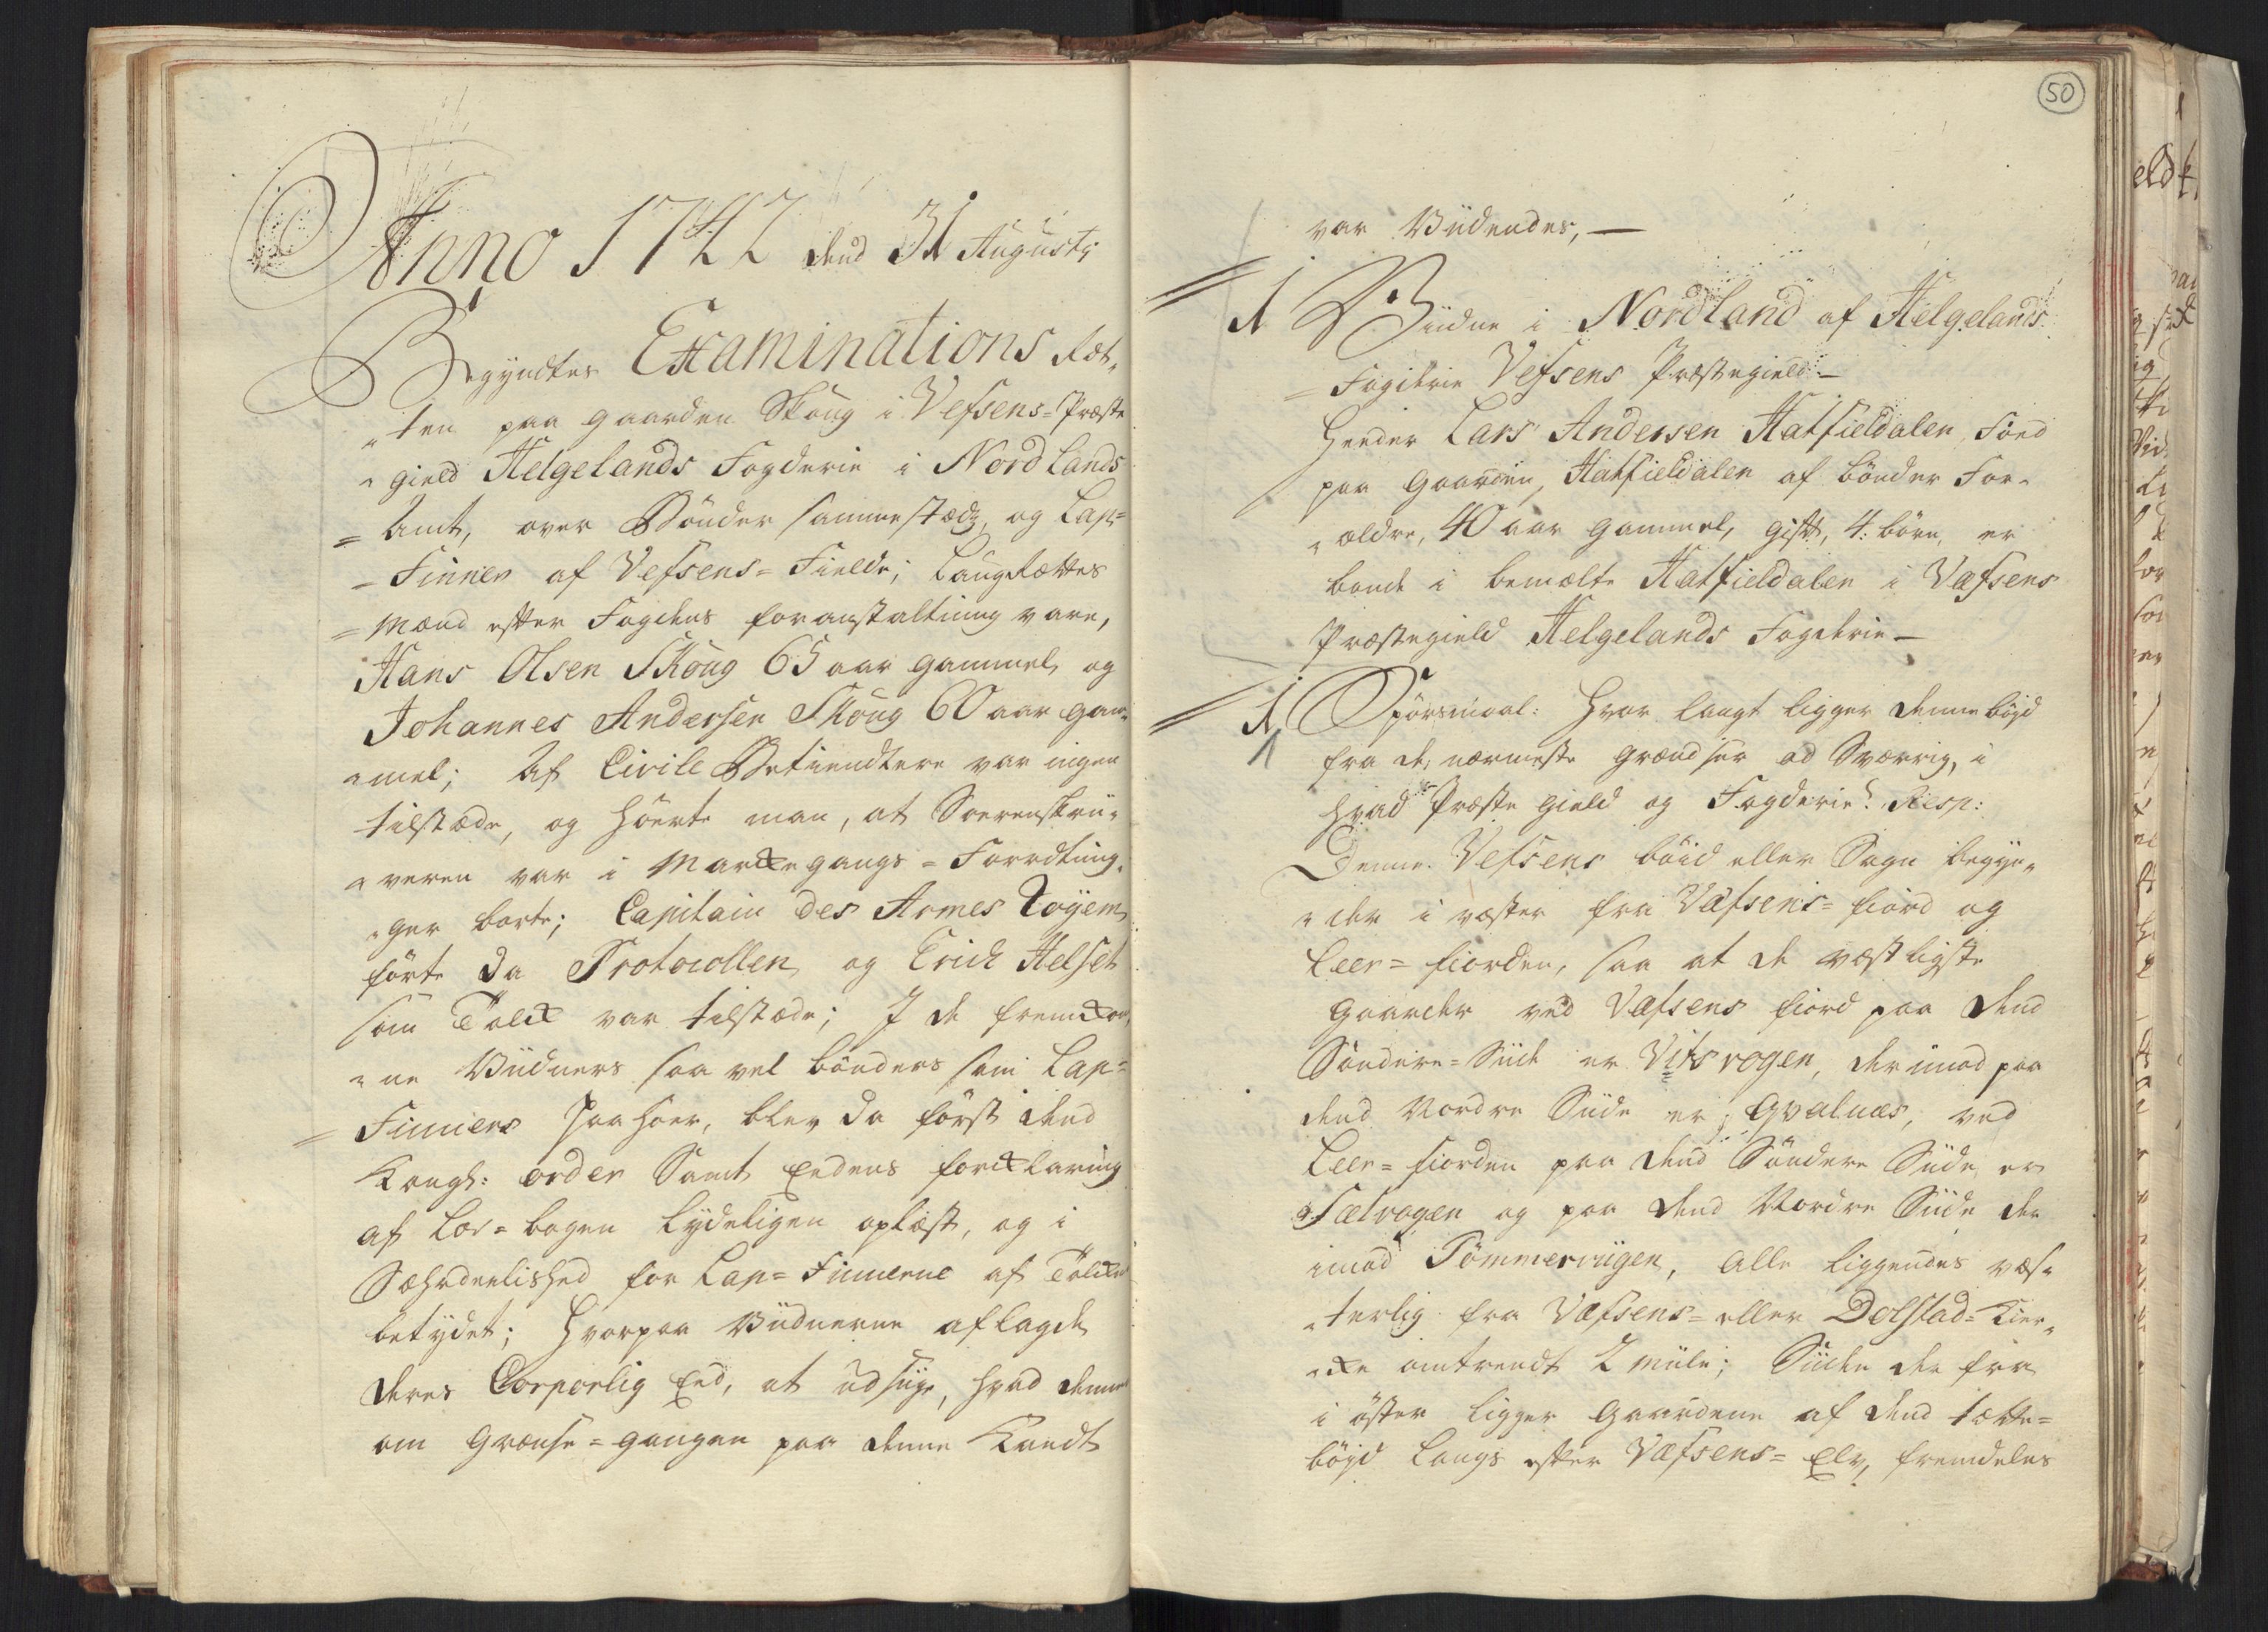 Anno 1742 dend 31 Augusty
Begyndtes Examinations Ret„
„ten paa gaarden Skoug i Vefsens= Præste
„gield Helgelands Fogderie i Nordlands
=Amt, over Bönder sammestædz, og Lap=
=Finner af Vefsens= Fielde; Laugrættes
=Mænd efter Fogdens foranstaltning vare,
Hans Olsen Skoug 65 aar gammel, og
Johannes Andersen Skoug 60 aar gam„
„mel; Af Civile Betiendtere var ingen
tilstæde, og hörte man, at Sorenskri„
„veren var i Markegangs= Forrætning„
„ger borte; Capitain des Armes Töyem
förte da Protocollen, og Erich Helset
som Tolk var tilstæde; J de fremkom„
„ne Viidners saa vel bönders som Lap=
=Finners Paahör, blev da först dend
Kongl: order Samt Eedens forklaring
af Lov=bogen lydeligen oplæst, og i
Sæhrdeelished for Lap= Finnerne af Tolken
betydet; hvorpaa Viidnerne aflagde
deres Corporlig Eed, at udsiige, hvad dennem
om Grænse=gangen paa denne Kandt
50
var Viidendes, —
1 Viidne i Nordland af Helgelands
=Fogderie Vefsens Præstegield —
heeder Lars Andersen Hatfieldalen, föed
paa Gaarden, Hatfieldalen af bönder For„
„ældre, 40 aar gammel, gift, 4: börn, er
bonde i bemælte Hatfieldalen i Vefsens
Præstegield Helgelands Fogderie —
1 Spörsmaal: hvor langt ligger denne böyd
1
fra de nærmeste Grændser ad Sværrig, i
hvad Præste gield og Fogderie? Resp:
Denne Vefsens böid eller Sogn begyn„
„der i væster fra Vefsens= fiord og
Leer= fiorden, saa at de væstligste
Gaarder ved Vefsens fiord paa dend
Söndere= Siide er Vitsvogen, der imod paa
dend Nordre Siide er, Qvalnæs, ved
Leer= fiorden paa dend Söndere Siide, er
Sælvogen og paa dend Nordre Siide der
imod Tömmerviigen, alle liggendes væs„
„terlig fra Vefsens= eller Dolstad= Kier„
„ke omtrendt 2 miile; Siiden der fra
i öster ligger Gaardene af dend tætte=
böyd langs efter Vefsens= Elv, fremdeles